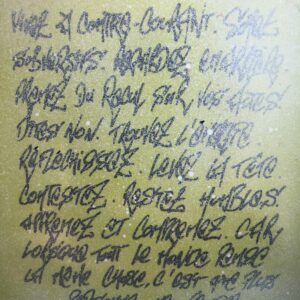 VIVRE À CONTRE-COURANT. SOYEZ
SUBVERSIFS.
PRENEZ DU RECUL SUR VOS ACTES!
DITES NON. TROUVEZ L'ÉNERGIE
RÉFLÉCHISSEZ. LEVEZ LA TÊTE.
CONTESTEZ. RESTEZ HUMBLES!
APPRENEZ ET COMPRENEZ. CAR,
LORSQUE TOUT LE MONDE PENSE
LA MÊME CHOSE, C'EST QUE PLUS